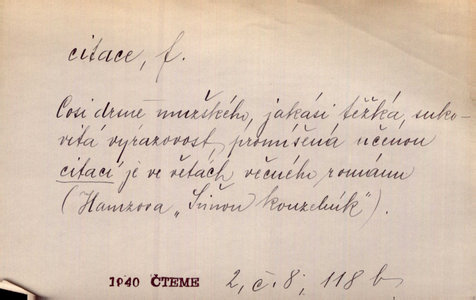 citace, f.
Cosi drmě mužského, jakási těžká, suko-
vitá výrazovost, promíšená učenou
citací je ve větách věcného románu
(Hamzova „Šimon kouzelník").
1940 ČTEME 2, č. 8, 118 b